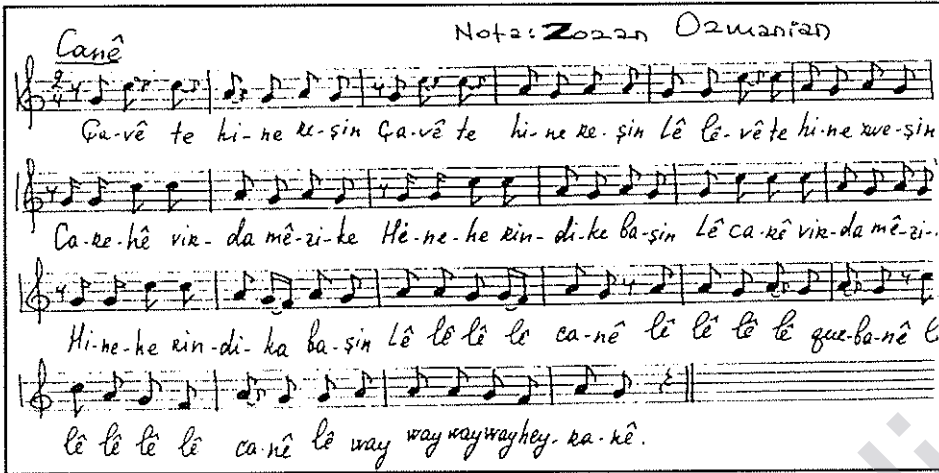 Nota: Zozan Ozmanian
Canê
2/4
Ça-vê te hi-ne re-şin Ça-vê te hi-ne re-şin Lê lê-vê te hi-ne xwe-şin
Ca-re-hê vir-da mê-zi-ke Hê-ne-he rin-di-ke ba-şin Lê ca-rê vir-da mê-zi-
Hi-ne-he rin-di-ka ba-şin Lê lê lê lê ca-nê lê lê lê lê qur-ba-nê l
lê lê lê lê ca-nê lê way way way way hey-ra-nê.